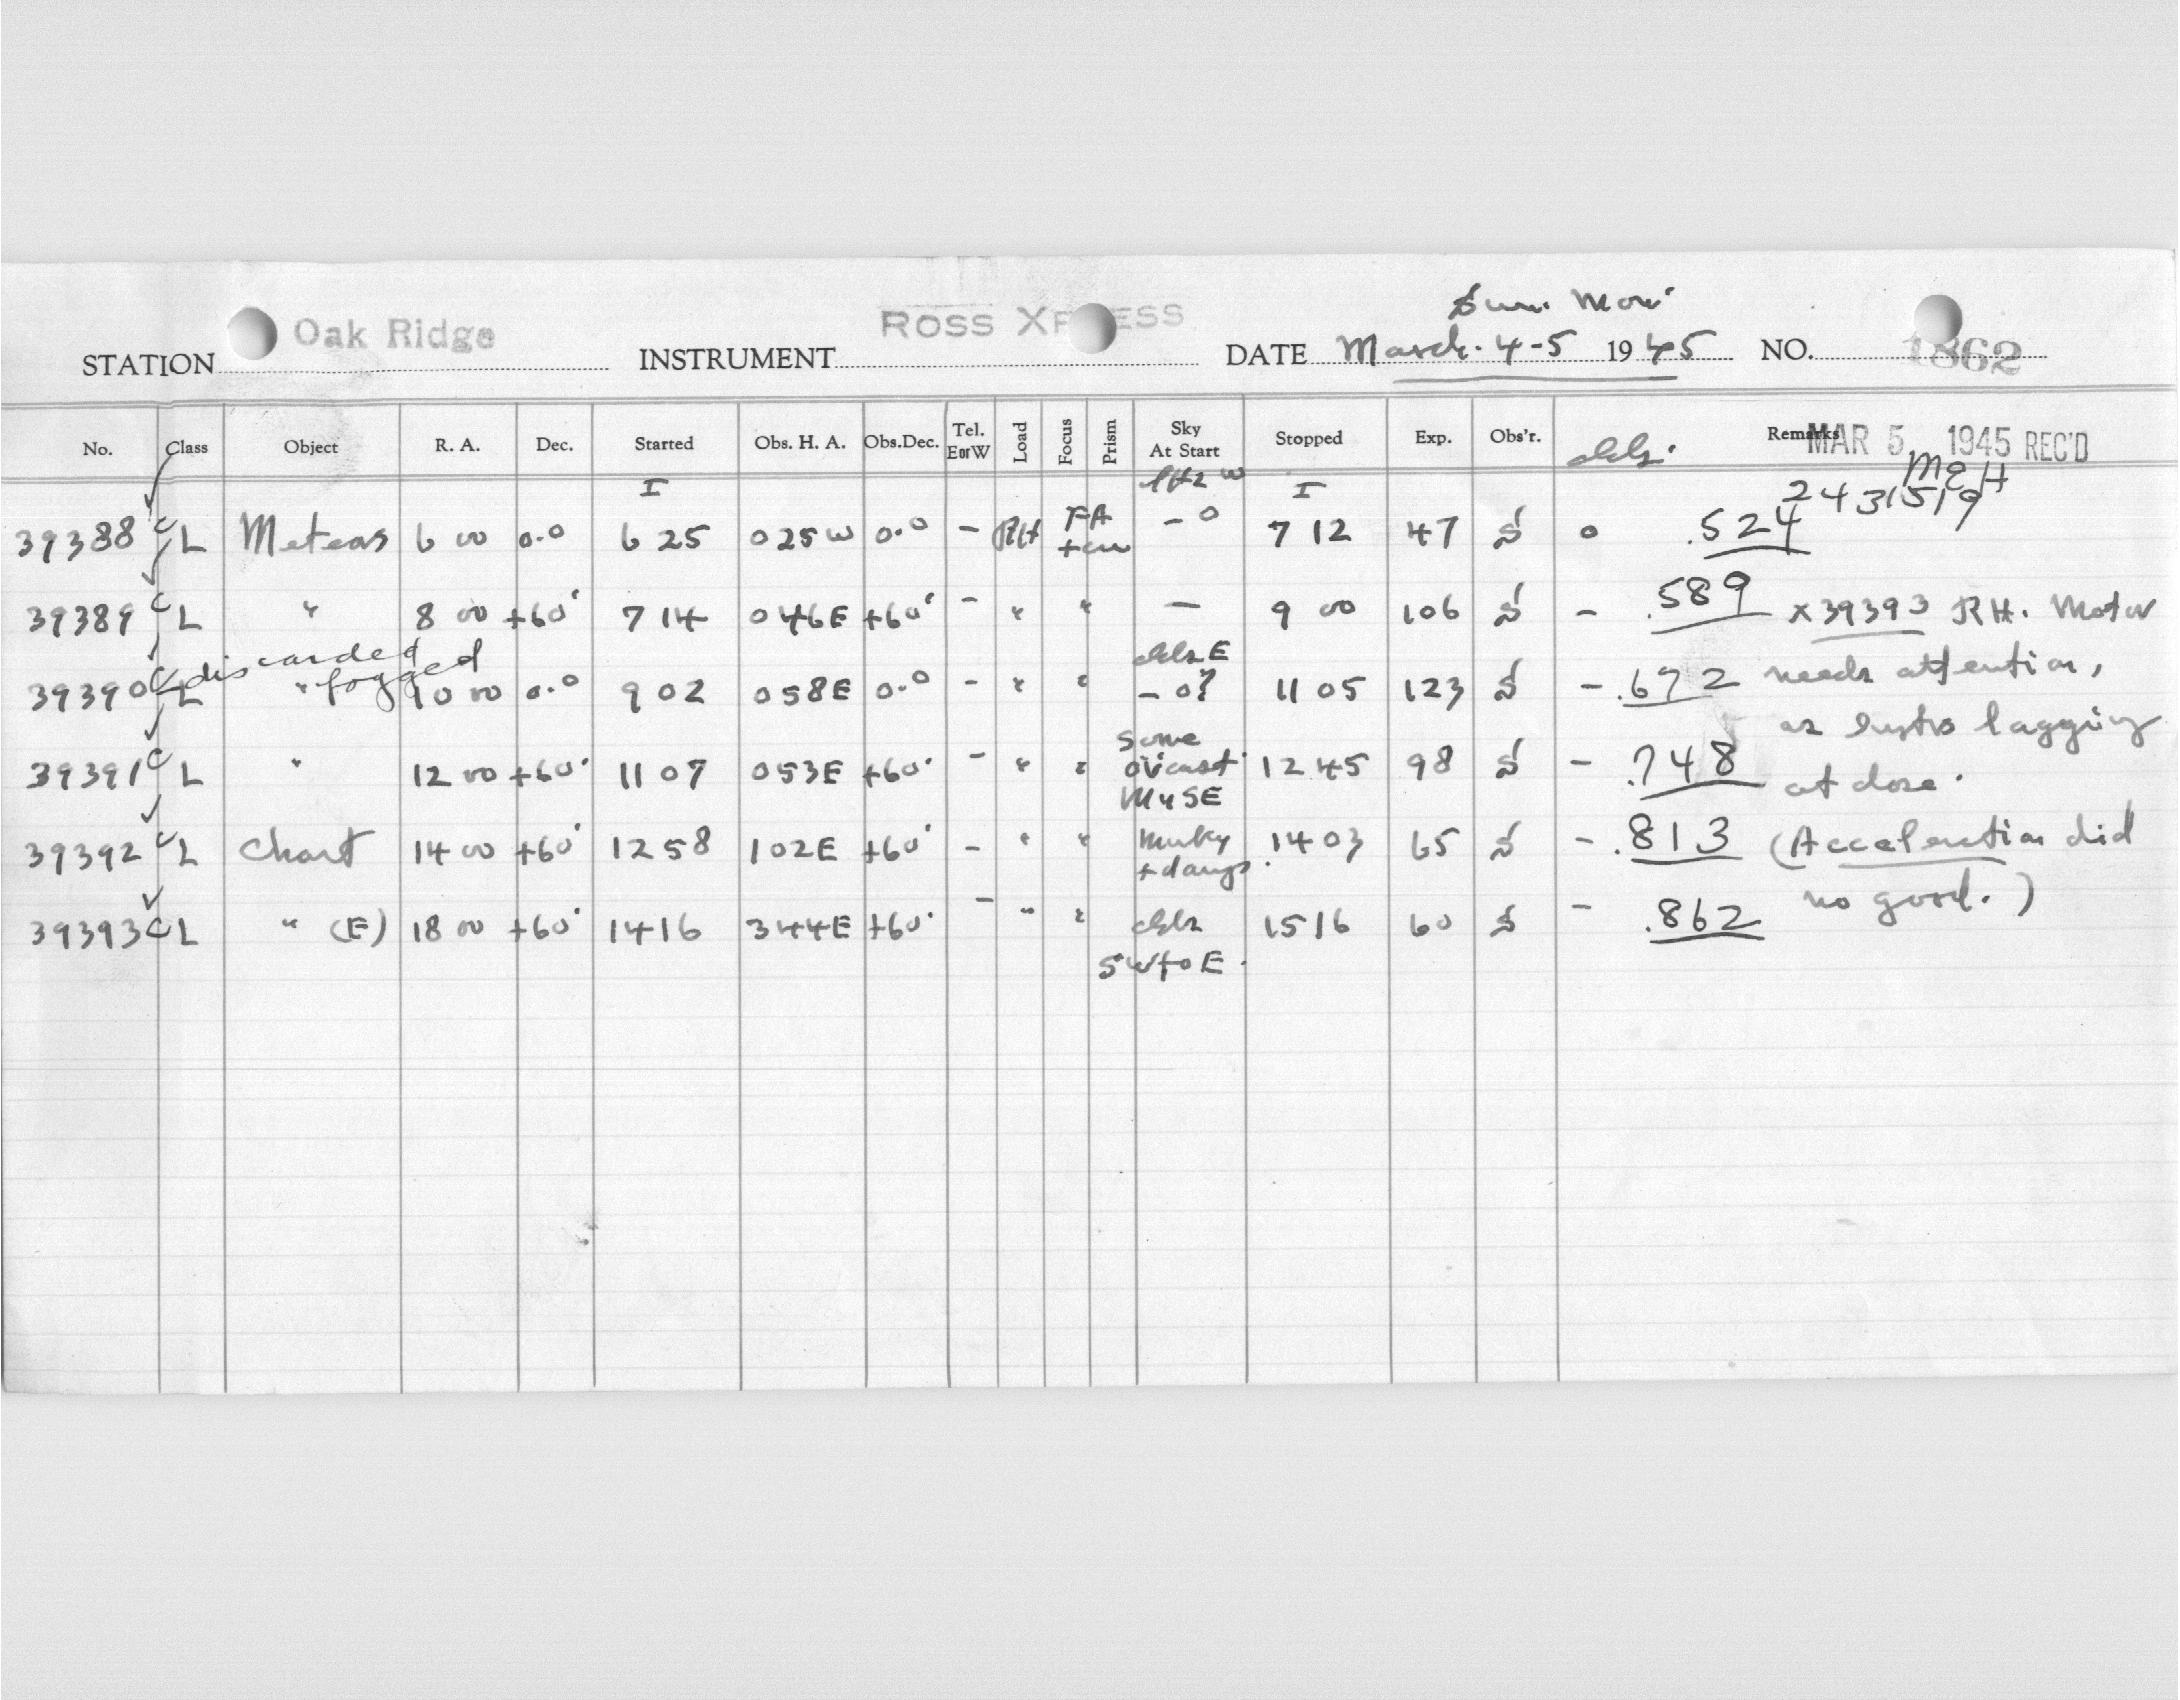 Sun. Mon.
STATION Oak Ridge INSTRUMENT ROSS XPRESS DATE March. 4-5 1945 NO. 1862
No. Class Object R. A. Dec. Started Obs. H. A. Obs.Dec. Tel. E or W Load Focus Prism Sky At Start Stopped Exp. Obs'r. Remarks
MAR 5 1945 REC'D
MEH
I I 2431519
39388 C L Meteors 6 00 0.0 6 25 0 25 W 0.0 - RH FA - 0 7 12 47 0 .524
39389 C L " 8 00 +60' 7 14 0 46 E +60' - " " - 9 00 106 - .589 x 39393 RH. Motor
discarded
fogged
39390 C L " 10 00 0.0 9 02 0 58 E 0.0 - " " - 0? 11 05 123 - .672 needs attention,
lagging
39391 C L " 12 00 +60' 11 07 0 53 E +60' - " " some 12 45 98 - .748 at close.
39392 C L Chart 14 00 +60' 12 58 1 02 E +60' - " " Murky 14 03 65 - .813 (Acceleration did
no good.)
39393 C L " (E) 18 00 +60' 14 16 3 44 E +60' - " " 15 16 60 - .862
SW to E.